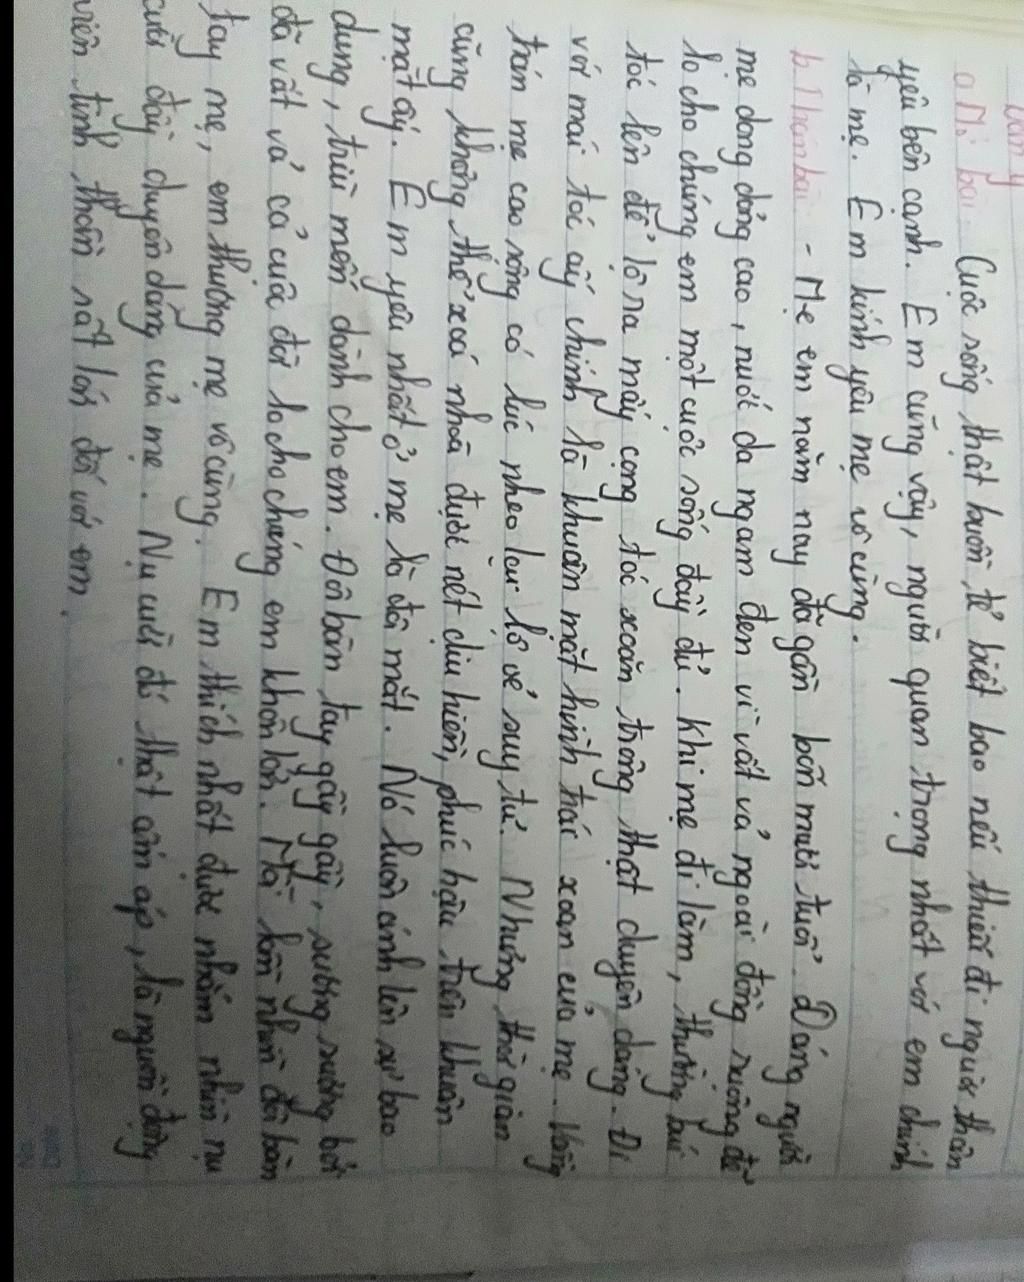 a. Mở bài: Cuộc sống thật buồn tẻ biết bao nếu thiếu đi người thân
yêu bên cạnh. Em cũng vậy, người quan trọng nhất với em chính
là mẹ. Em kính yêu mẹ vô cùng.
b. Thân bài - Mẹ em năm nay đã gần bốn mươi tuổi. Dáng người
mẹ dong dỏng cao, nước da ngam đen vì vất vả ngoài đồng ruộng để
lo cho chúng em một cuộc sống đầy đủ. Khi mẹ đi làm, thường búi
tóc lên để lộ ra mấy cọng tóc xoăn trông thật duyên dáng. Đi
với mái tóc ấy chính là khuôn mặt hình trái xoan của mẹ. Vầng
trán mẹ cao rộng có lúc nheo lại lộ vẻ suy tư. Nhưng thời gian
cũng không thể xoá nhoà được nét dịu hiền, phúc hậu trên khuôn
mặt ấy. Em yêu nhất ở mẹ là đôi mắt. Nó luôn ánh lên sự bao
dung, trìu mến dành cho em. Đôi bàn tay gầy gầy, xương xương bởi
đã vất vả cả cuộc đời lo cho chúng em khôn lớn. Mỗi lần nhìn đôi bàn
tay mẹ, em thương mẹ vô cùng. Em thích nhất được nhắm nhìn nụ
cười đầy duyên dáng của mẹ. Nụ cười đó thật ấm áp, là nguồn động
viên tinh thần rất lớn đối với em.